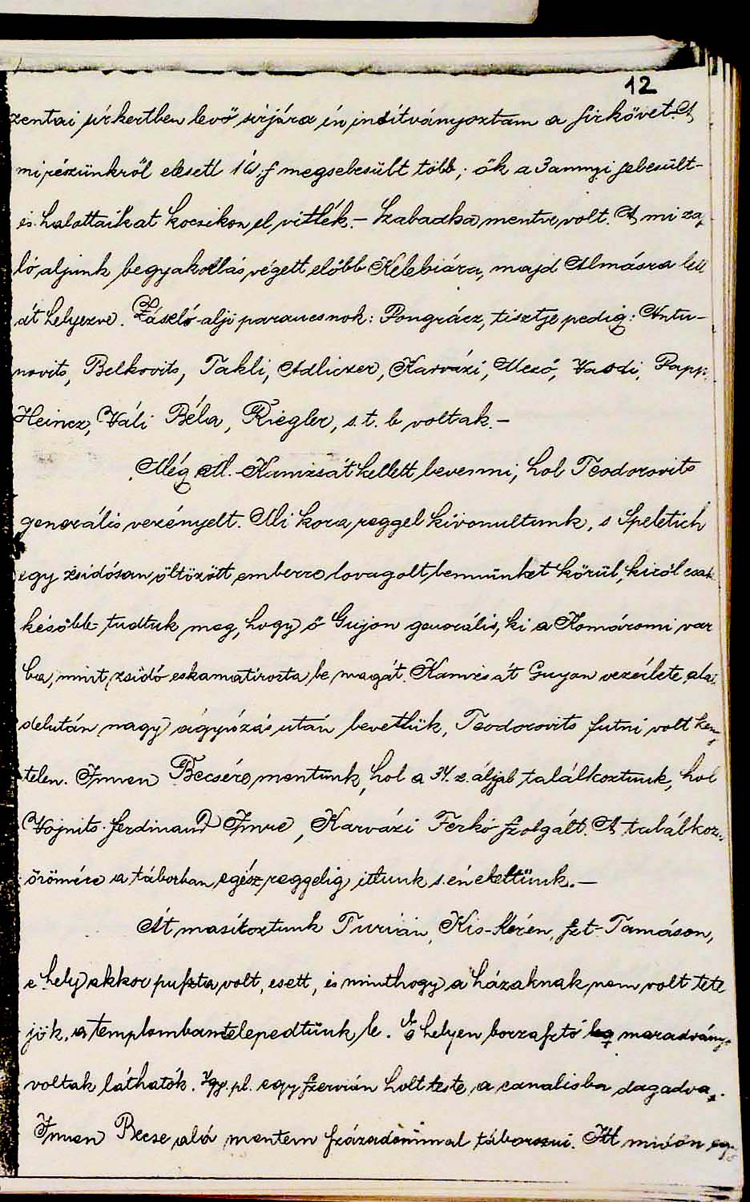 12
zentai sirkertben levő sirjára én inditványoztam a sirkövet. A
mi részünkről elesett 16, s megsebesült több; ők a 3 annyi sebesült-
és halottaikat kocsikon el vitték. – Szabadka mentve volt. A mi zász-
ló aljunk begyakorlás végett előbb Kelebiára, majd Almásra lett
át helyezve. Zászló-alji parancsnok: Pongrácz, tisztje pedig: Antu-
novits, Belkovits, Takli, Adliczer, Karvázi, Mező, Vasdi, Papp,
Heincz, Váli Béla, Riegler, s. t. b voltak. –
Még Ó.-Kanizsát kellett bevenni, hol Teodorovits
generális vezényelt. Mi kora reggel kivonultunk, s Speletich
egy zsidósan öltözött emberre lovagolt bennünket körül, kiről csak
később tudtuk meg, hogy ő Gujon generális, ki a Komáromi vár
ba, mint zsidó eskamatirozta be magát. Kanizsát Guyon vezérlete ala
délután nagy ágyúzás után bevettük, Teodorovits futni volt kény
telen. Innen Becsére mentünk, hol a 34. z. aljjal találkoztunk, hol
Vojnits ferdinand Imre, Karvázi Ferkó szolgált. A találkoz.
örömére a táborban egész reggelig ittunk s énekeltünk. –
Át masiroztunk Turián, Kis-Kéren, szt-Tamáson,
e hely akkor puszta volt, esett, és minthogy a házaknak nem volt tete
jök, a templomban telepedtünk le. E helyen borzasztó maradványo
voltak láthatók. Igy pl. egy szervián holt teste a canalisba dagadva.
Innen Becse alá mentem századommal táborozni. Itt midőn eg